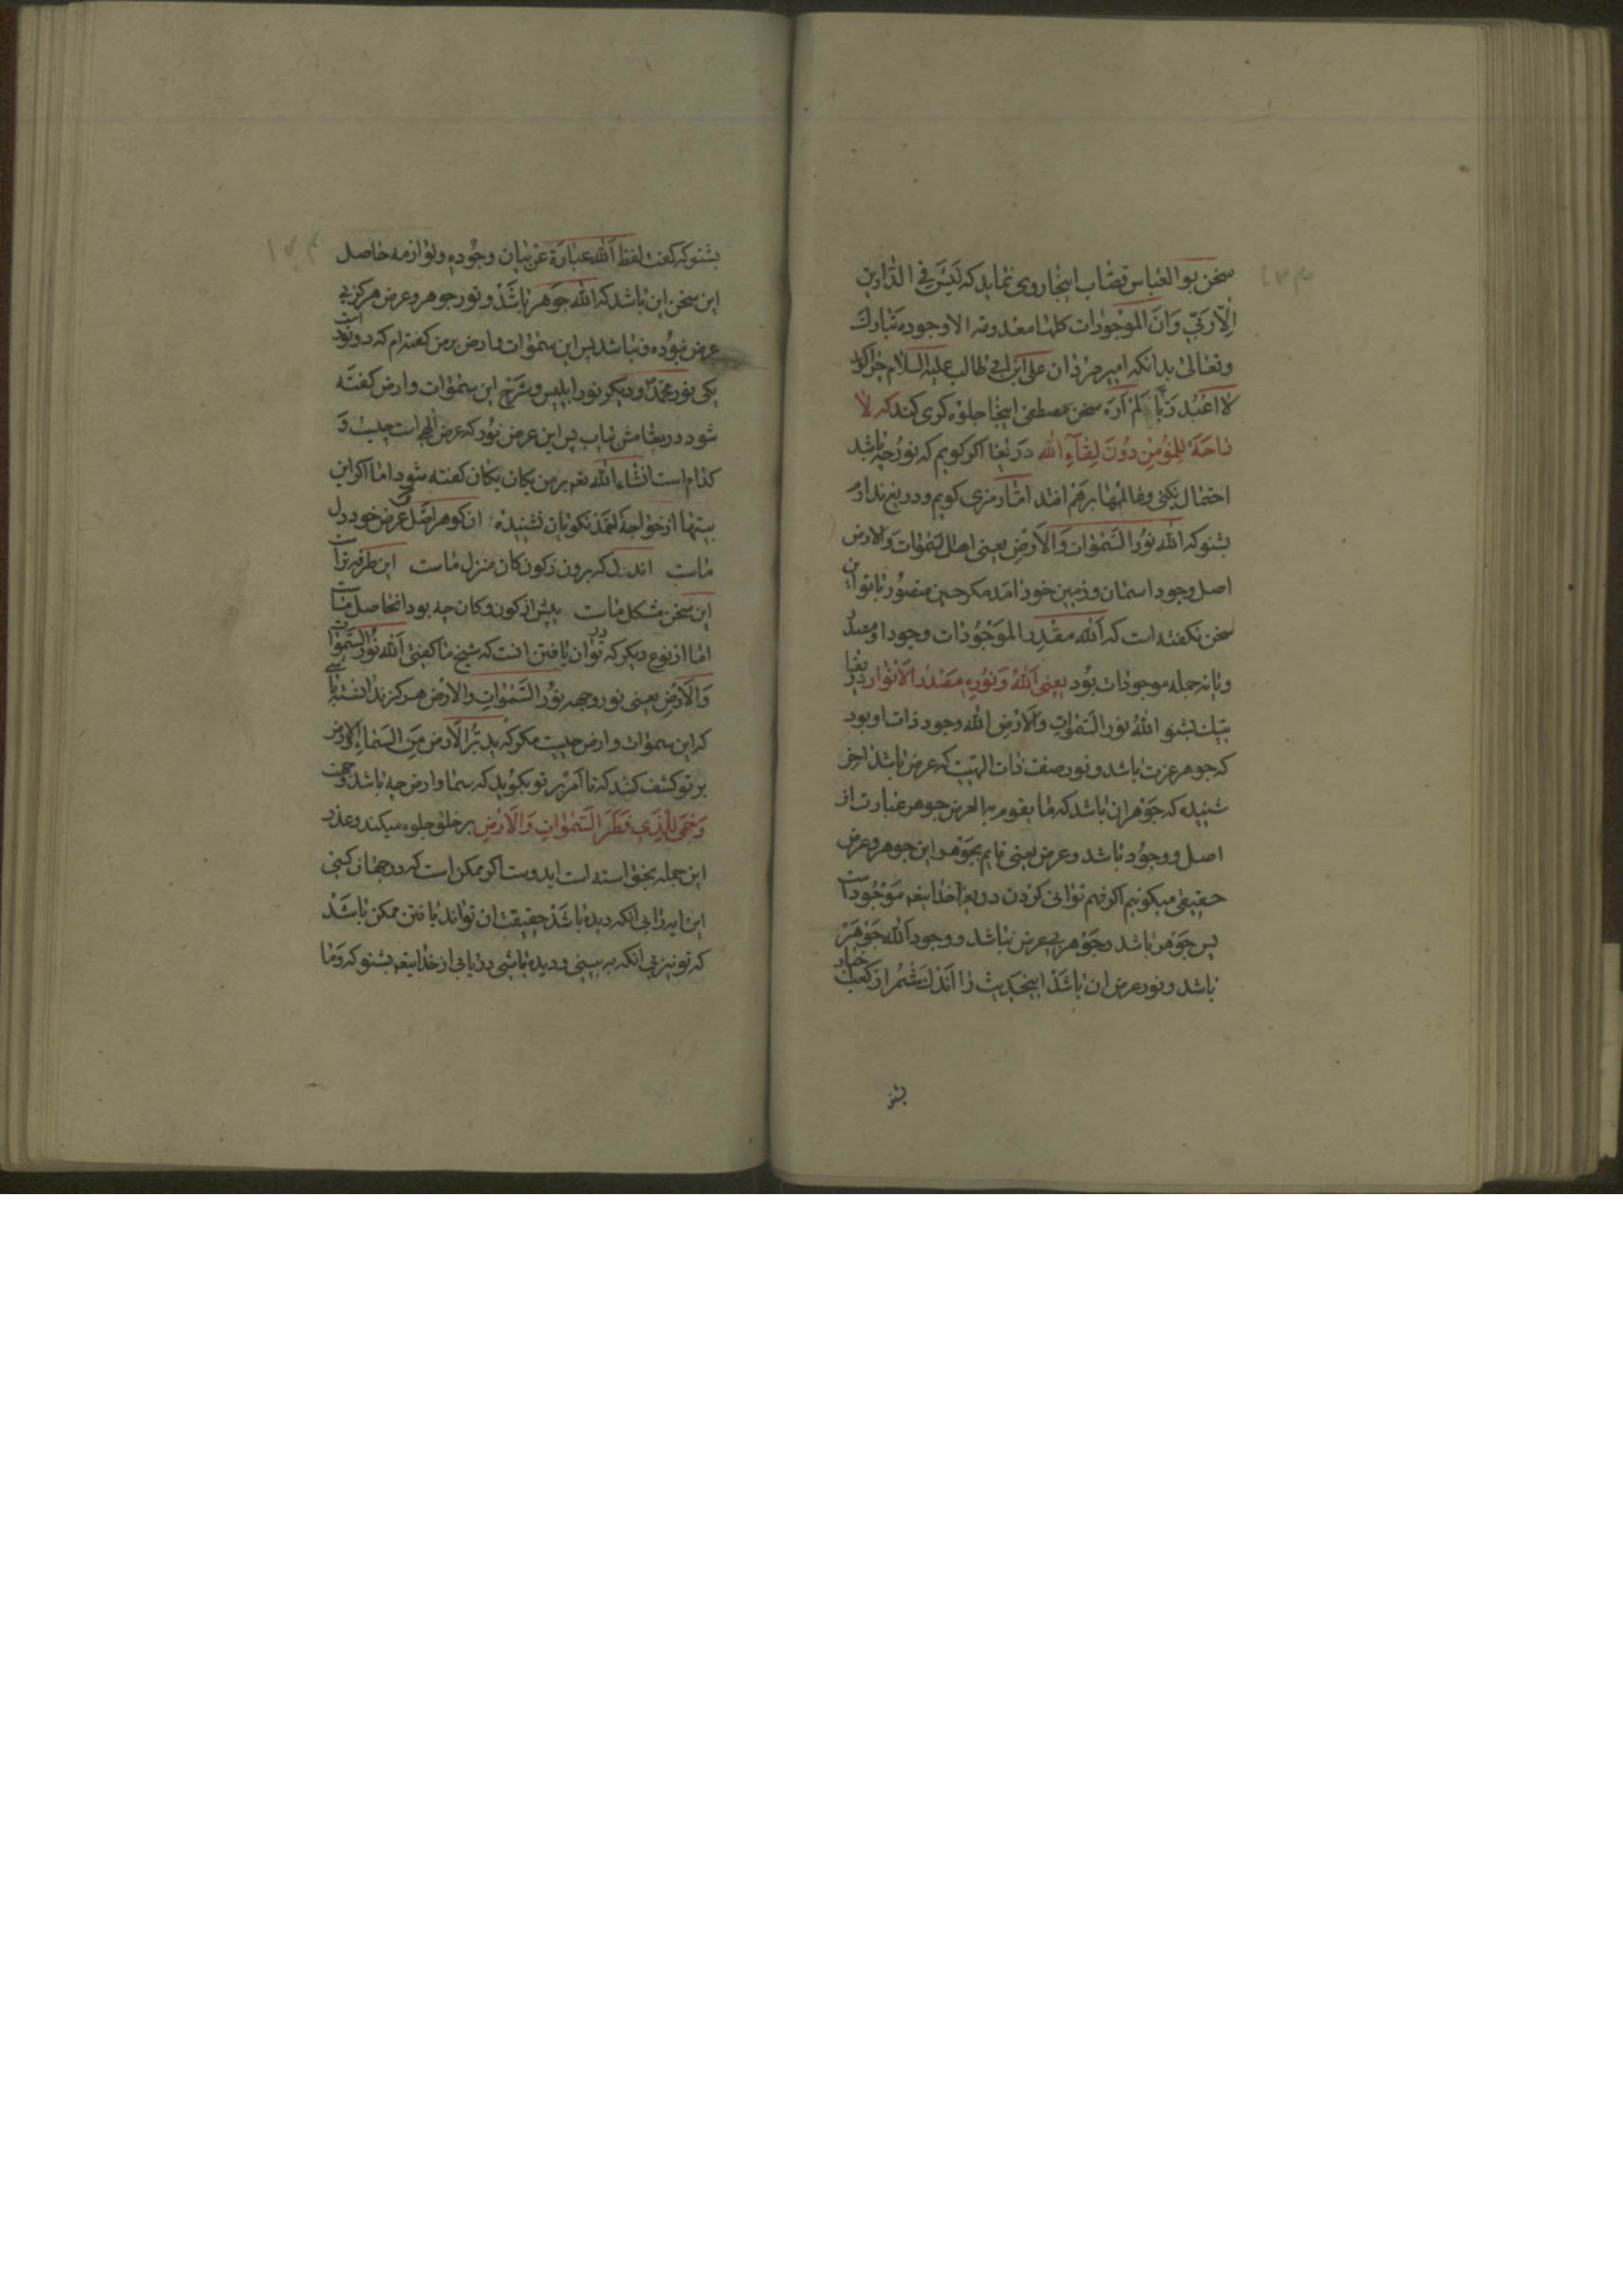 سخن بو العباس قصاب اینجا روی نماید که لیس فی الدارین
الا ربی وان الموجودات کلها معدومة الا وجوده تبارک
وتعالی بدانکه امیر مردان علی ابن ابی طالب علیه السلام چرا کوید
لا اعبد ربا لم اره سخن مصطفی اینجا جلوه کری کند که لا
راحة للمؤمن دون لقاء الله دریغا اکر کویم که نور چه باشد
احتمال نکنی وعالمها برهم افتد اما رمزی کویم ودریغ ندارم
بشنو که الله نور السموات والارض یعنی اصل السموات والارض
اصل وجود اسمان وزمین خود امد مکر حسین منصور با تو این
سخن نکفته است که الله مصدر الموجودات وجود او مصدر
ومایه جمله موجودات بود یعنی الله ونوره مصدر الانوار دریغا
بشنو الله نور السموات والارض الله وجود ذات او بود
که جوهر عزت باشد ونور صفت ذات الهیت که عرض باشد اخر
شنیده که جوهر ان باشد که ما یقوم به العرض جوهر عبارت از
اصل ووجود باشد وعرض یعنی قایم بجوهر این جوهر وعرض
حقیقی میکویم اکر فهم توانی کردن دریغا خدایتعم موجودات
پس جوهر باشد وجوهر بی عرض نباشد ووجود الله جوهر
باشد ونور عرض ان باشد اینحدیث را اندک مشمر از کعب احبار
بشنو
بشنو که کفت لفظ الله عبارة عن بیان وجوده ولوازمه حاصل
این سخن این باشد که الله جوهر باشد ونور جوهر وعرض هرکز بی
عرض نبوده ونباشد پس این سموات وارض برمز کفته ام که دو نور است
یکی نور محمد ودیکر نور ابلیس وشرح این سموات وارض کفته
شود در بقامش بباب پس این عرض نور که عرض الهی است چیست و
کدام است انشاء الله تعم برمز یکان یکان کفته شود اما اکر این
بیتها از خواجه احمد نکویان نشنیده ان کوهر اصل عرض خود دل
ماست اندل که برون ز کون کان منزل ماست این طرفه تر است
این سخن مشکل ماست پیش از کون وکان چه بود انحاصل ماست
اما از نوع دیکر که در توان یافتن انست که شیخ ما کفتی الله نور السموات
والارض یعنی نور وجهه نور السموات والارض هرکز ندانسته باشی
که این سموات وارض چیست مکر که یدبر الامر من السماء الی الارض
بر تو کشف کند که تا امر بر تو بکوید که سما وارض چه باشد وجهت
وجهی للذی فطر السموات والارض بر خلق جلوه میکند وعذر
این جمله بخواسته است ایدوست اکر ممکن است که در جهان کسی
این ایه را بی انکه دیده باشد حقیقت ان تواند یافتن ممکن باشد
که تو نیز بی انکه به بینی ودیده باشی دریابی از خدایتعم بشنو که وما